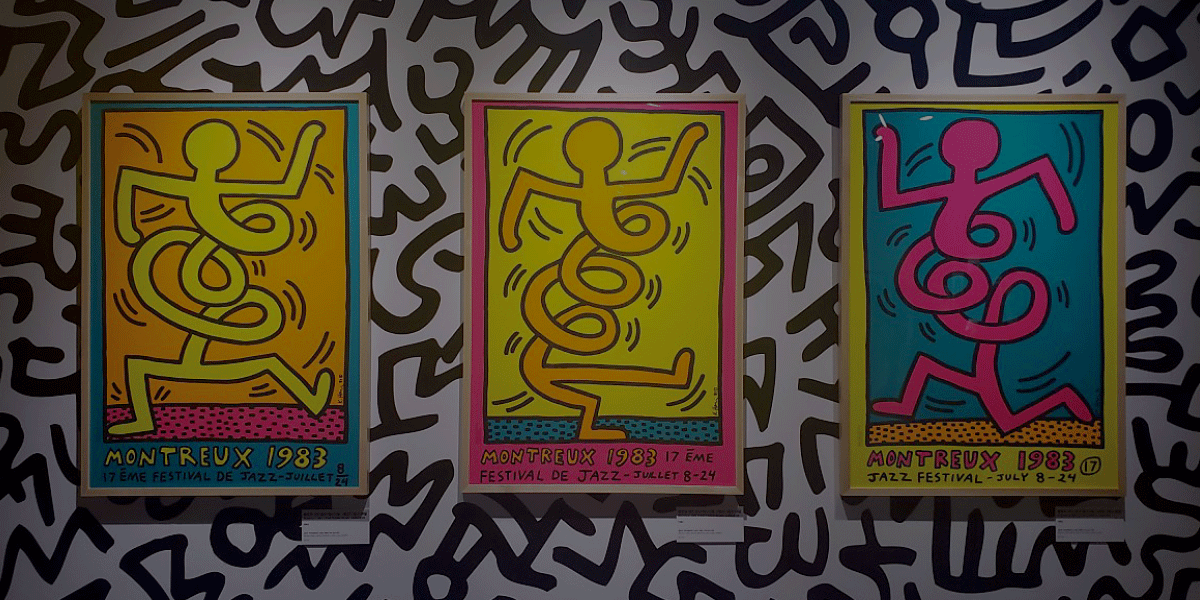 MONTREUX 1983
17 ĒME FESTIVAL DE JAZZ-JUILLET 8
24
MONTREUX 1983 17 ĒME
FESTIVAL DE JAZZ-JUILLET 8-24
MONTREUX 1983 17
JAZZ FESTIVAL - JULY 8-24